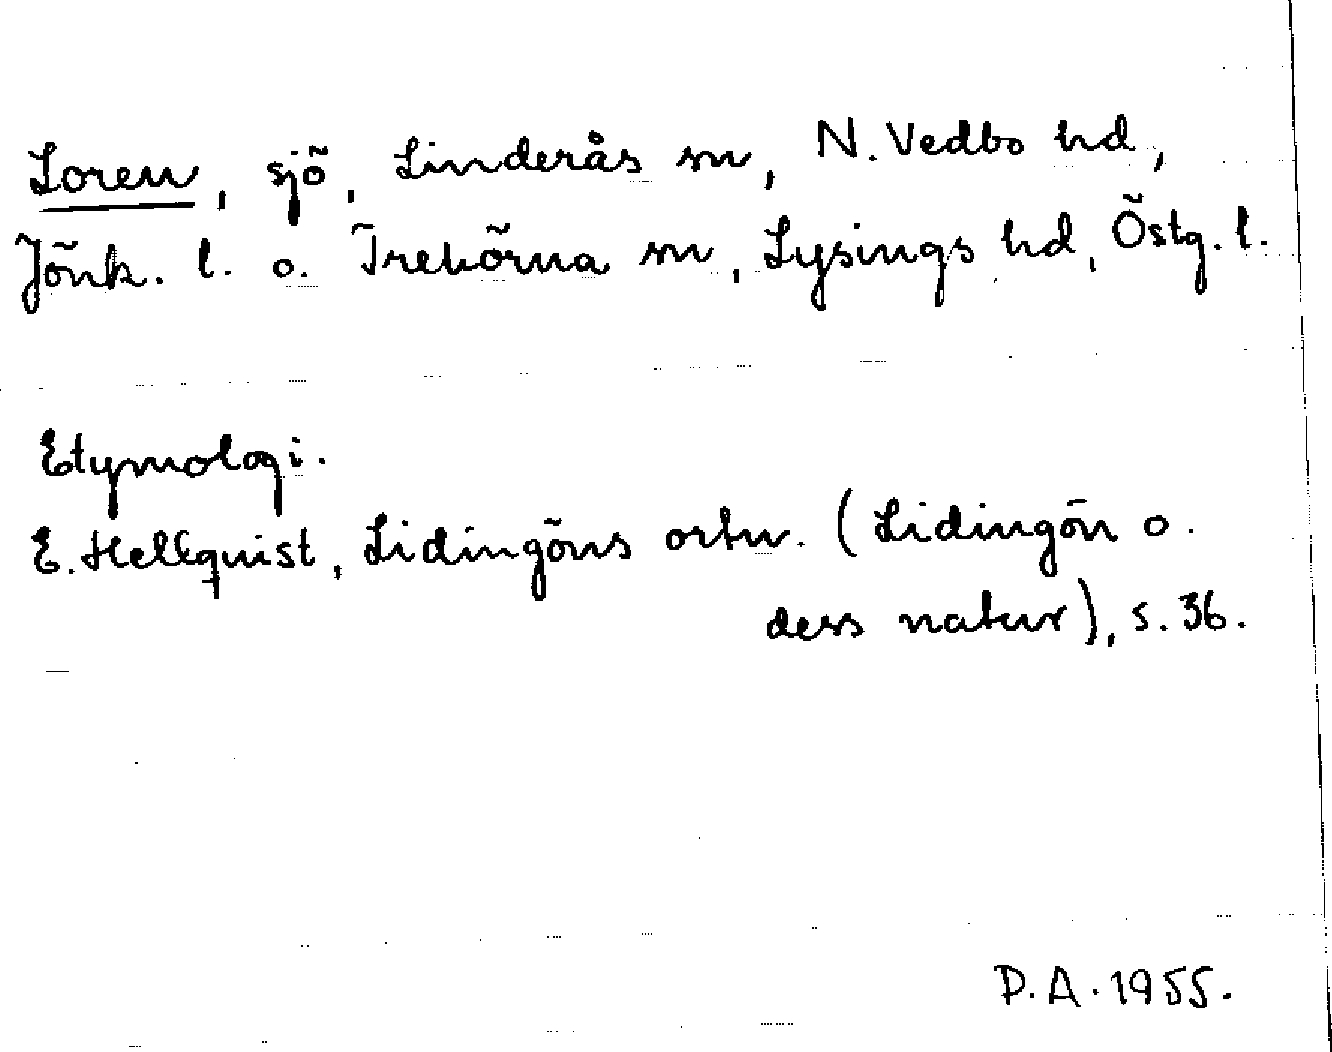 Loren, sjö, Linderås sn, N. Vedbo hd,
Jönk. l. o. Trehörna sn, Lysings hd, Östg. l.
Etymologi.
E. Hellquist, Lidingöns ortn. (Lidingön o.
dess natur), s. 36.
P.A. 1955.